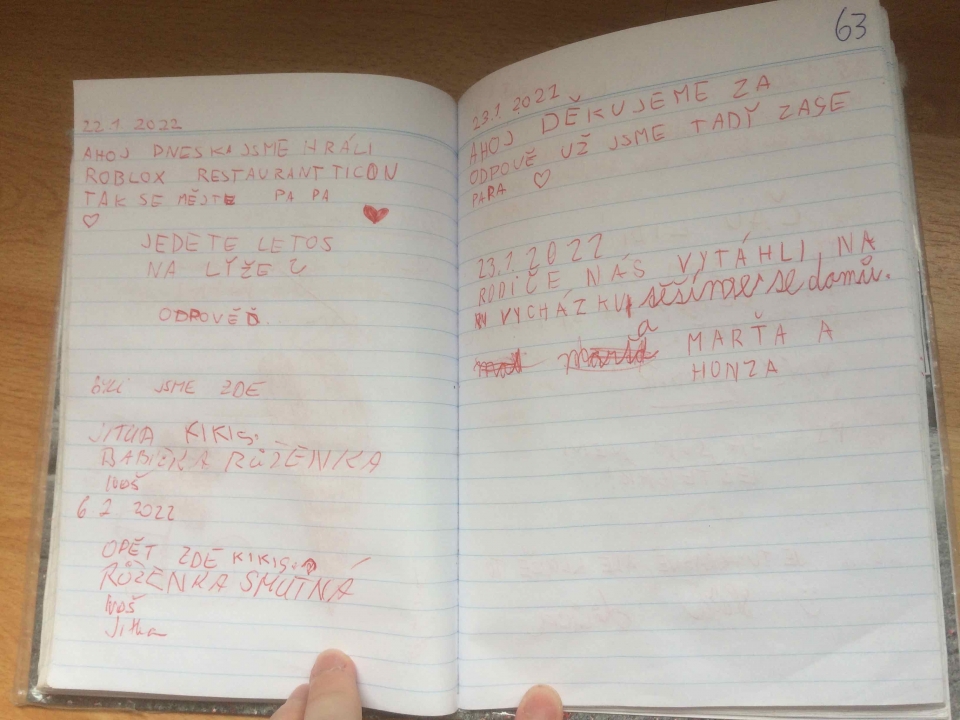 22.1 2022
AHOJ DNESKA JSME HRÁLI
ROBLOX RESTAURANT TICON
TAK SE MĚJTE PA PA
♡ ♥
JEDETE LETOS
NA LYŽE ?
ODPOVĚĎ.
byli JSME ZDE
JITKA KIKIS.
BABIČKA RŮŽENKA
Ivoš
6 2 2022
OPĚT ZDE KIKIS.
RŮŽENKA SMUTNÁ
Ivoš
Jitka
63
23.1.2021
AHOJ DĚKUJEME ZA
ODPOVĚ UŽ JSME TADY ZASE
PARA ♡
23.1.2022
RODIČE NÁS VYTÁHLI NA
VYCHÁZKU, těšíme se domů.
a
MARŤA A
HONZA